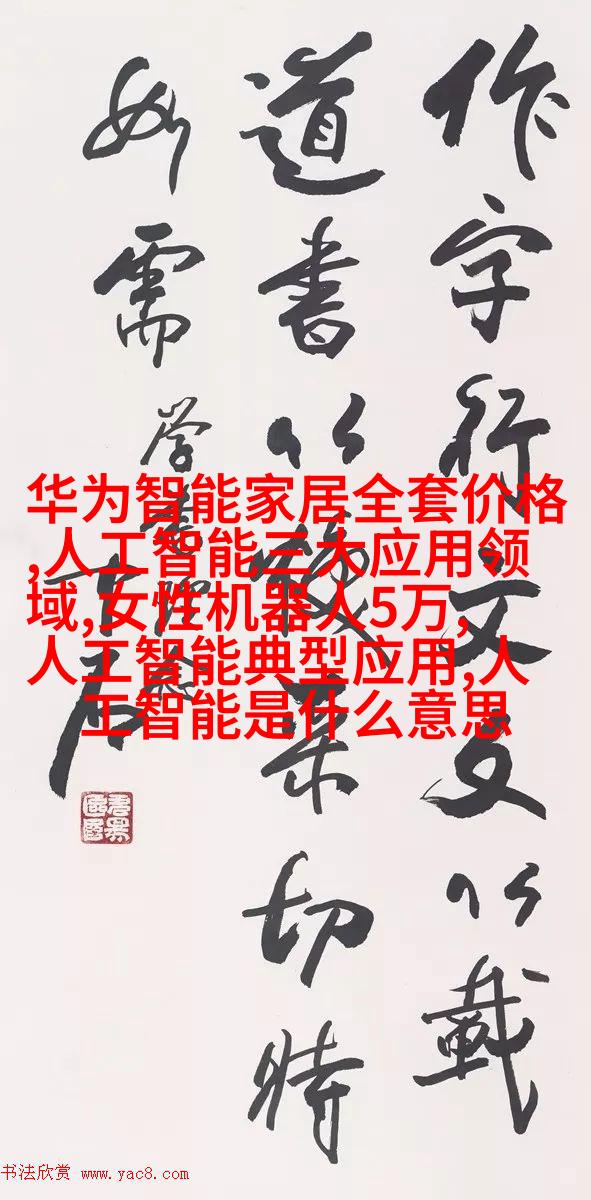 作字行文文以載
道書以煥采切時
如需
华为智能家居全套价格
,人工智能三大应用领
域,女性机器人5万,
人工智能典型应用,人
工智能是什么意思
书法欣赏 www.yac8.com